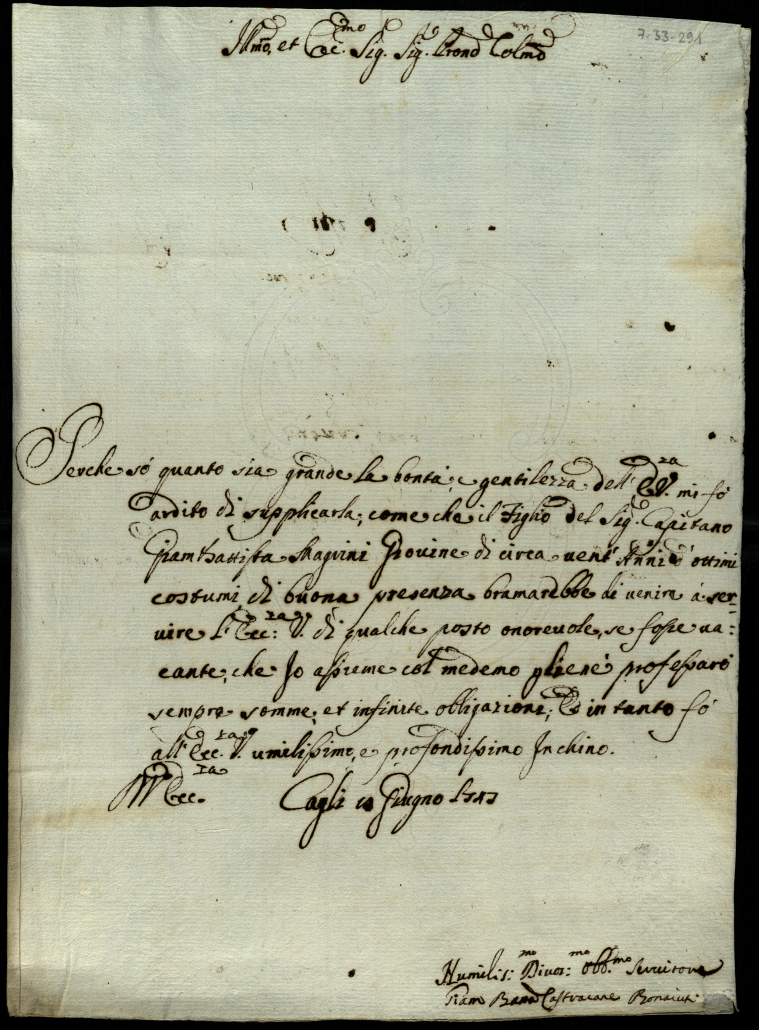 7-33-291
Illmo, et Ecc.mo Sig. Sig. Prone Colmo
Perche só quanto sia grande la bontà, e gentilezza dell' E.za V. mi fó
ardito di supplicarla, come che il Figlio del Sig. Capitano
Giambattista Magrini Giovine di circa vent' Anni d' ottimi
costumi di buona presenza bramarebbe di venire á ser-
vire l' Ecc:za V. di qualche posto onorevole, se fosse va:
cante, che Io assieme col medemo gliene professaró
sempre somme, et infinite obligazioni; Et in tanto fó
all' Ecc.za V. umilissimo, e profondissimo Inchino.
Ecc.za
Cagli Giugno
Humilis:mo Divot:mo Obb.mo Servitore
Giam Batta Castracane